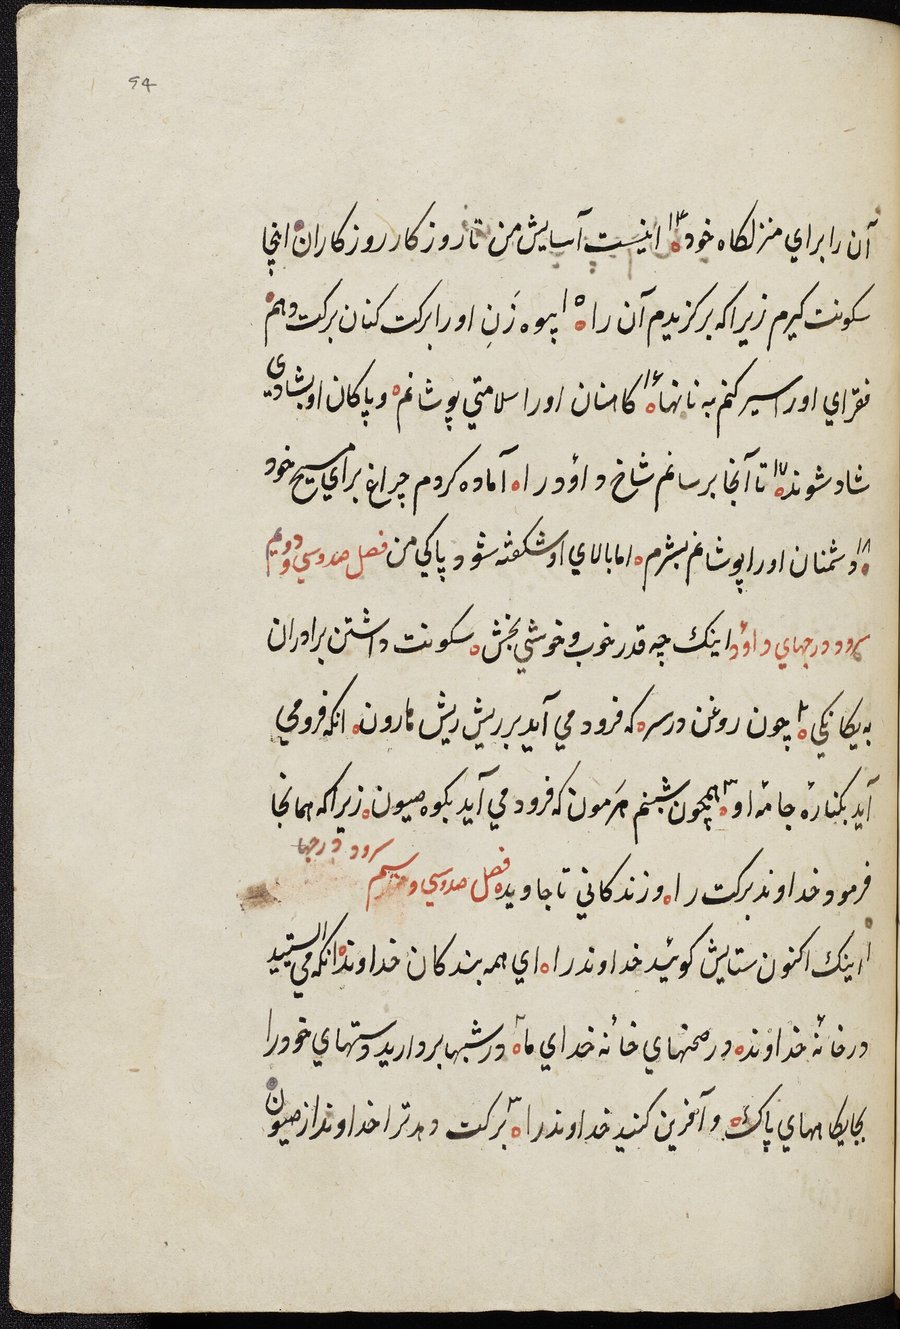 94
آن را براي منزلکاه خود ۱۴ اینست آسایش من تا روزکار روزکاران اینجا
سکونت کیرم زیرا که برکزیدم آن را ۱۵ بیوه زَنِ او را برکت کنان برکت دهم
فقراي او را سیر کنم به نانها ۱۶ کاهنان او را سلامتي پوشانم و پاکان او بشادي
شاد شوند ۱۷ تا آنجا برسانم شاخ داؤد را آماده کردم چراغ براي مسیح خود
۱۸ دشمنان او را پوشانم بشرم اما بالاي او شکفته شود پاکي من فصل صد و سي و دویم
سرود درجهاي داؤد اینک چه قدر خوب و خوشي بخش سکونت داشتن برادران
به یکانکي ۲ چون روغن در سر که فرود مي آید بر ریش ریش هارون انکه فرو مي
آید بکنارهٔ جامهٔ او ۳ همچون شبنم هرَمون که فرود مي آید بکوه صیون زیرا که همانجا
فرمود خداوند برکت را و زندکاني تا جاوید فصل صد و سي و سیم سرود درجها
۱ اینک اکنون ستایش کوئید خداوند را اي همه بندکان خداوند انکه مي ایستید
در خانهٔ خداوند در صحنهاي خانهٔ خداي ما ۲ در شبها بردارید دستهاي خود را
بجایکاههاي پاک و آفرین کنید خداوند را ۳ برکت دهد ترا خداوند از صیون